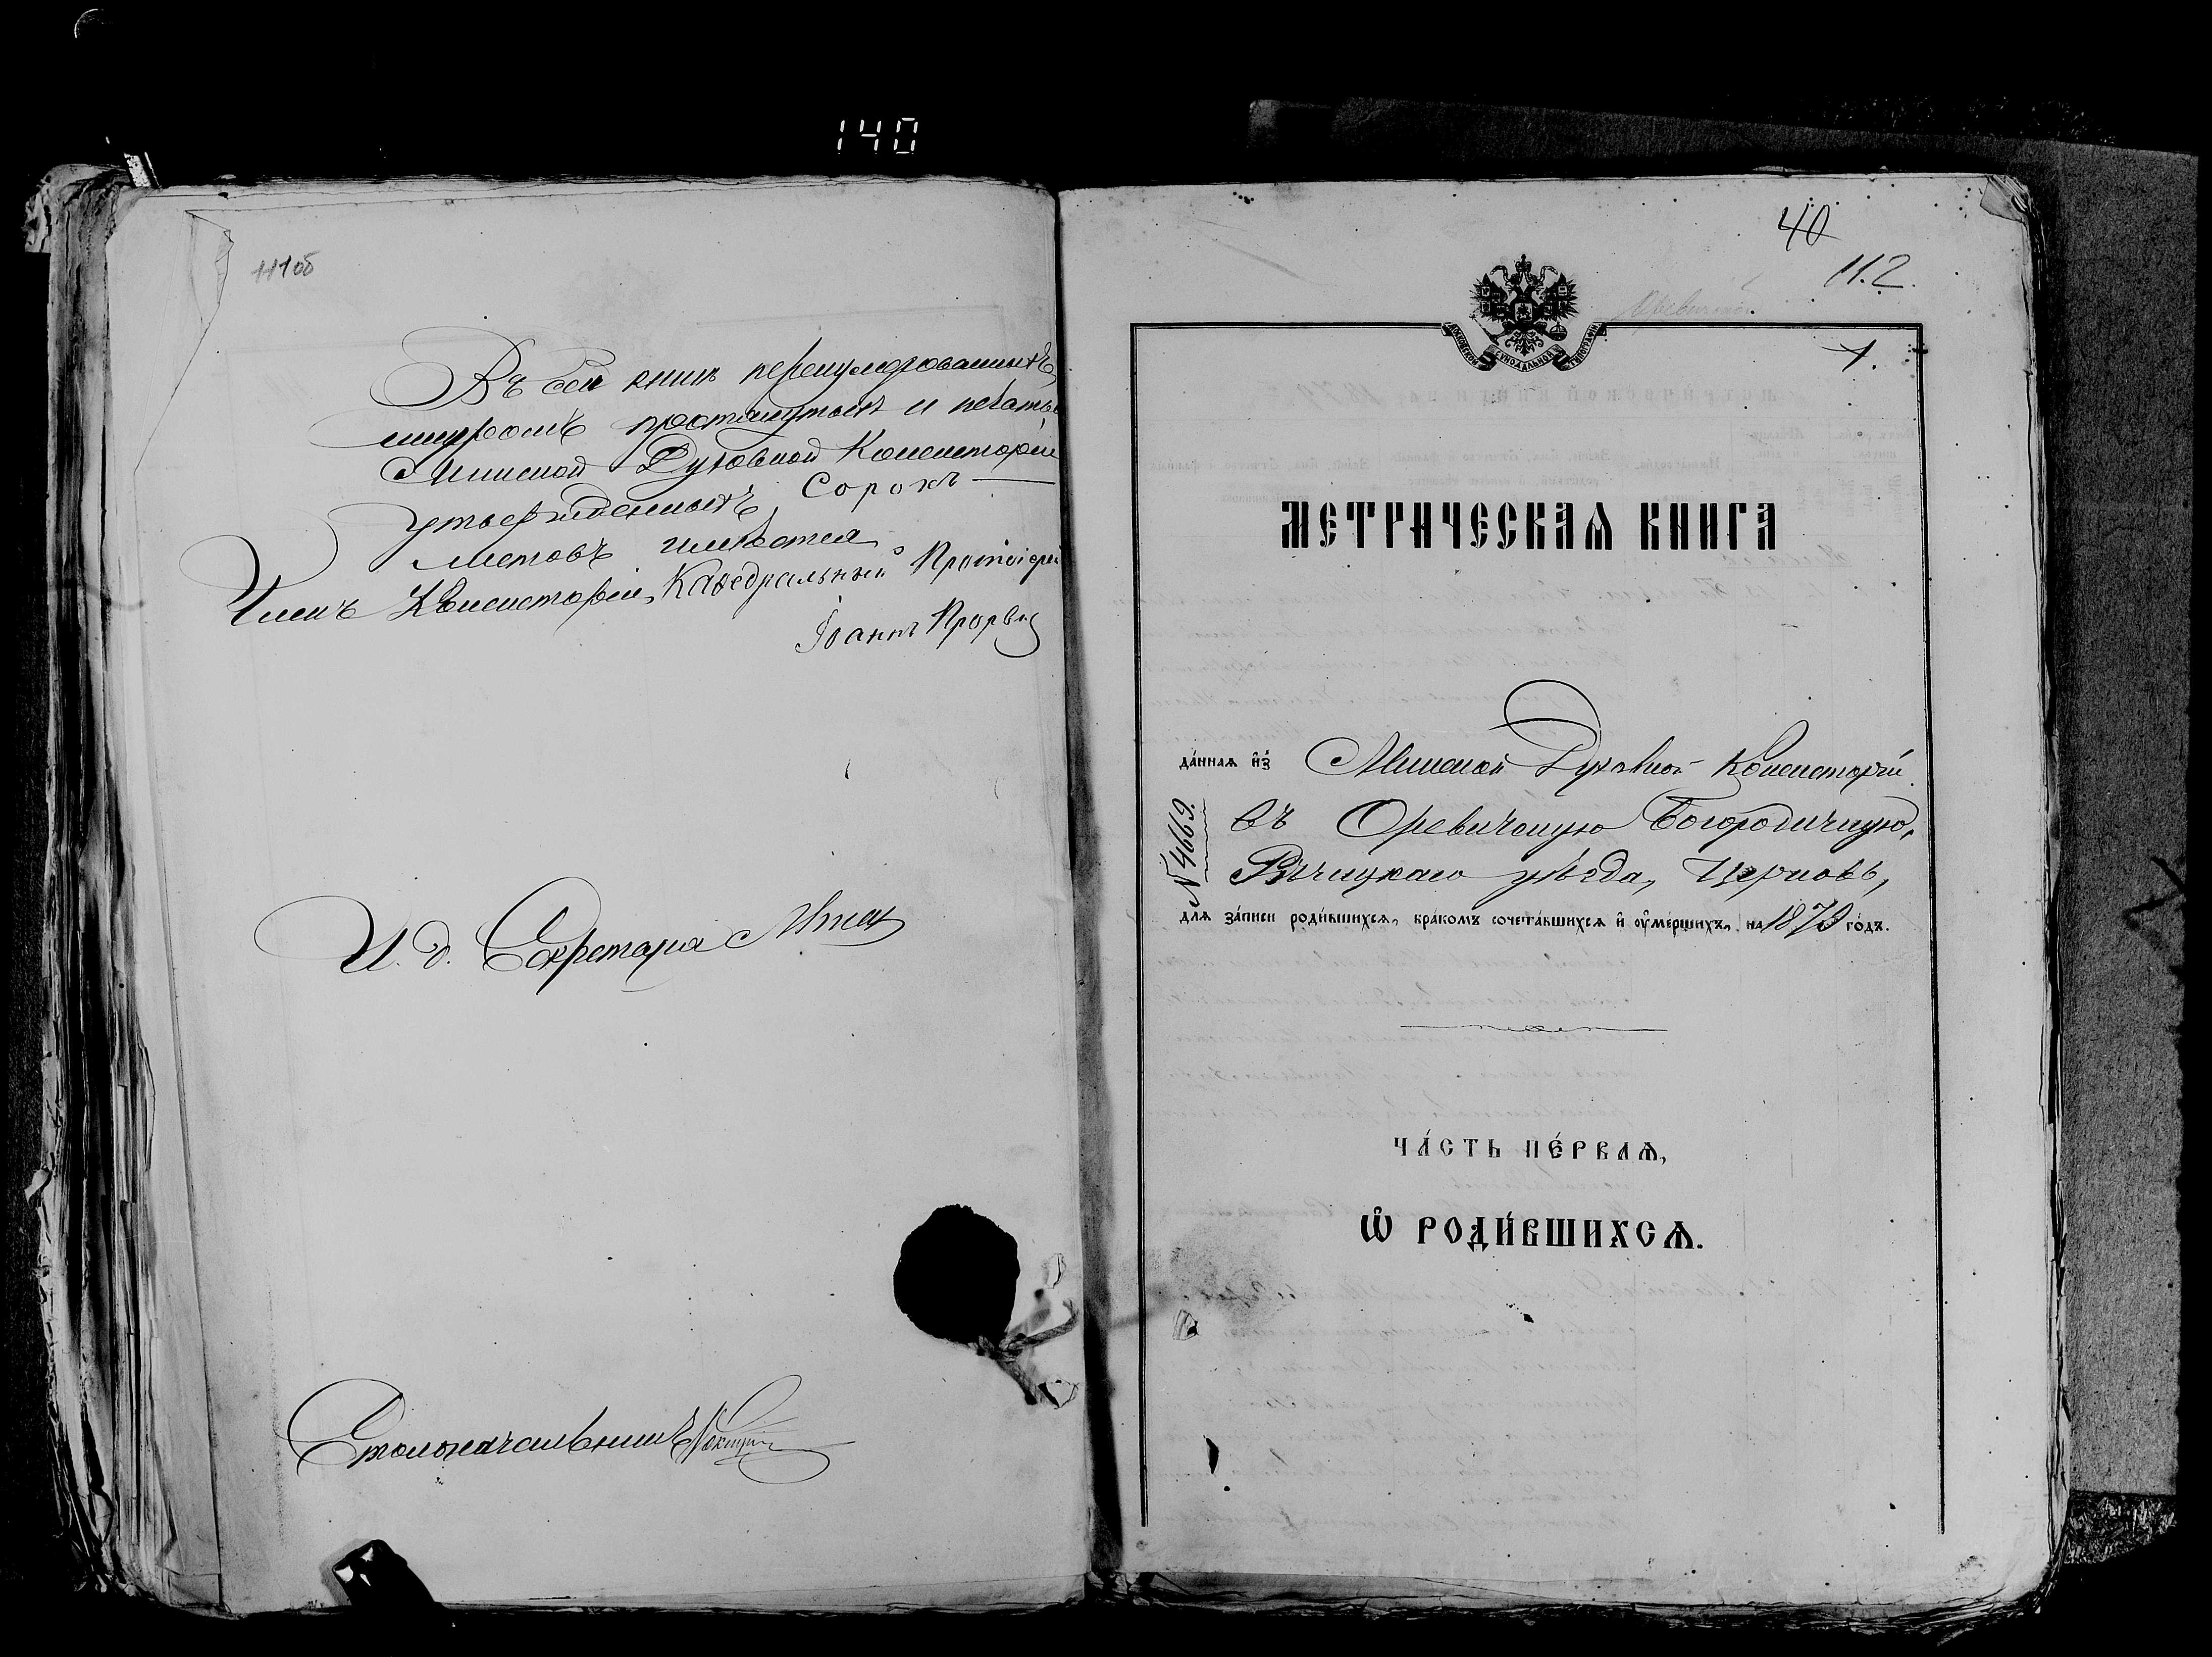 140
111об
Въ сей книгѣ перенумерованныхъ,
шнуромъ протянутыхъ и печатью
Минской Духовной Консисторіи
утвержденныхъ, Сорокъ
листовъ имѣется
Членъ Консисторіи, Кафедральный Протоіерей
Іоаннъ Прорвич
И. д. Секретаря
Столоначальникъ
40
112.
1.
МОСКОВСКОЙ СѴНОДАЛЬНОЙ ТИПОГРАФІИ
МЕТРИЧЕСКАѦ КНИГА
да́ннаѧ и҆з̾ Минской Духовной Консисторіи
въ Оревичскую Богородичную,
Рѣчицкаго уѣзда, Церковь,
№ 4669.
длѧ за́писи роди́вшихсѧ, бра́комъ сочета́вшихсѧ и҆ ᲂу҆ме́ршихъ, на 1879 го́дъ.
ЧА́СТЬ ПЕ́РВАѦ,
Ѡ҆ РОДИ́ВШИХСѦ.